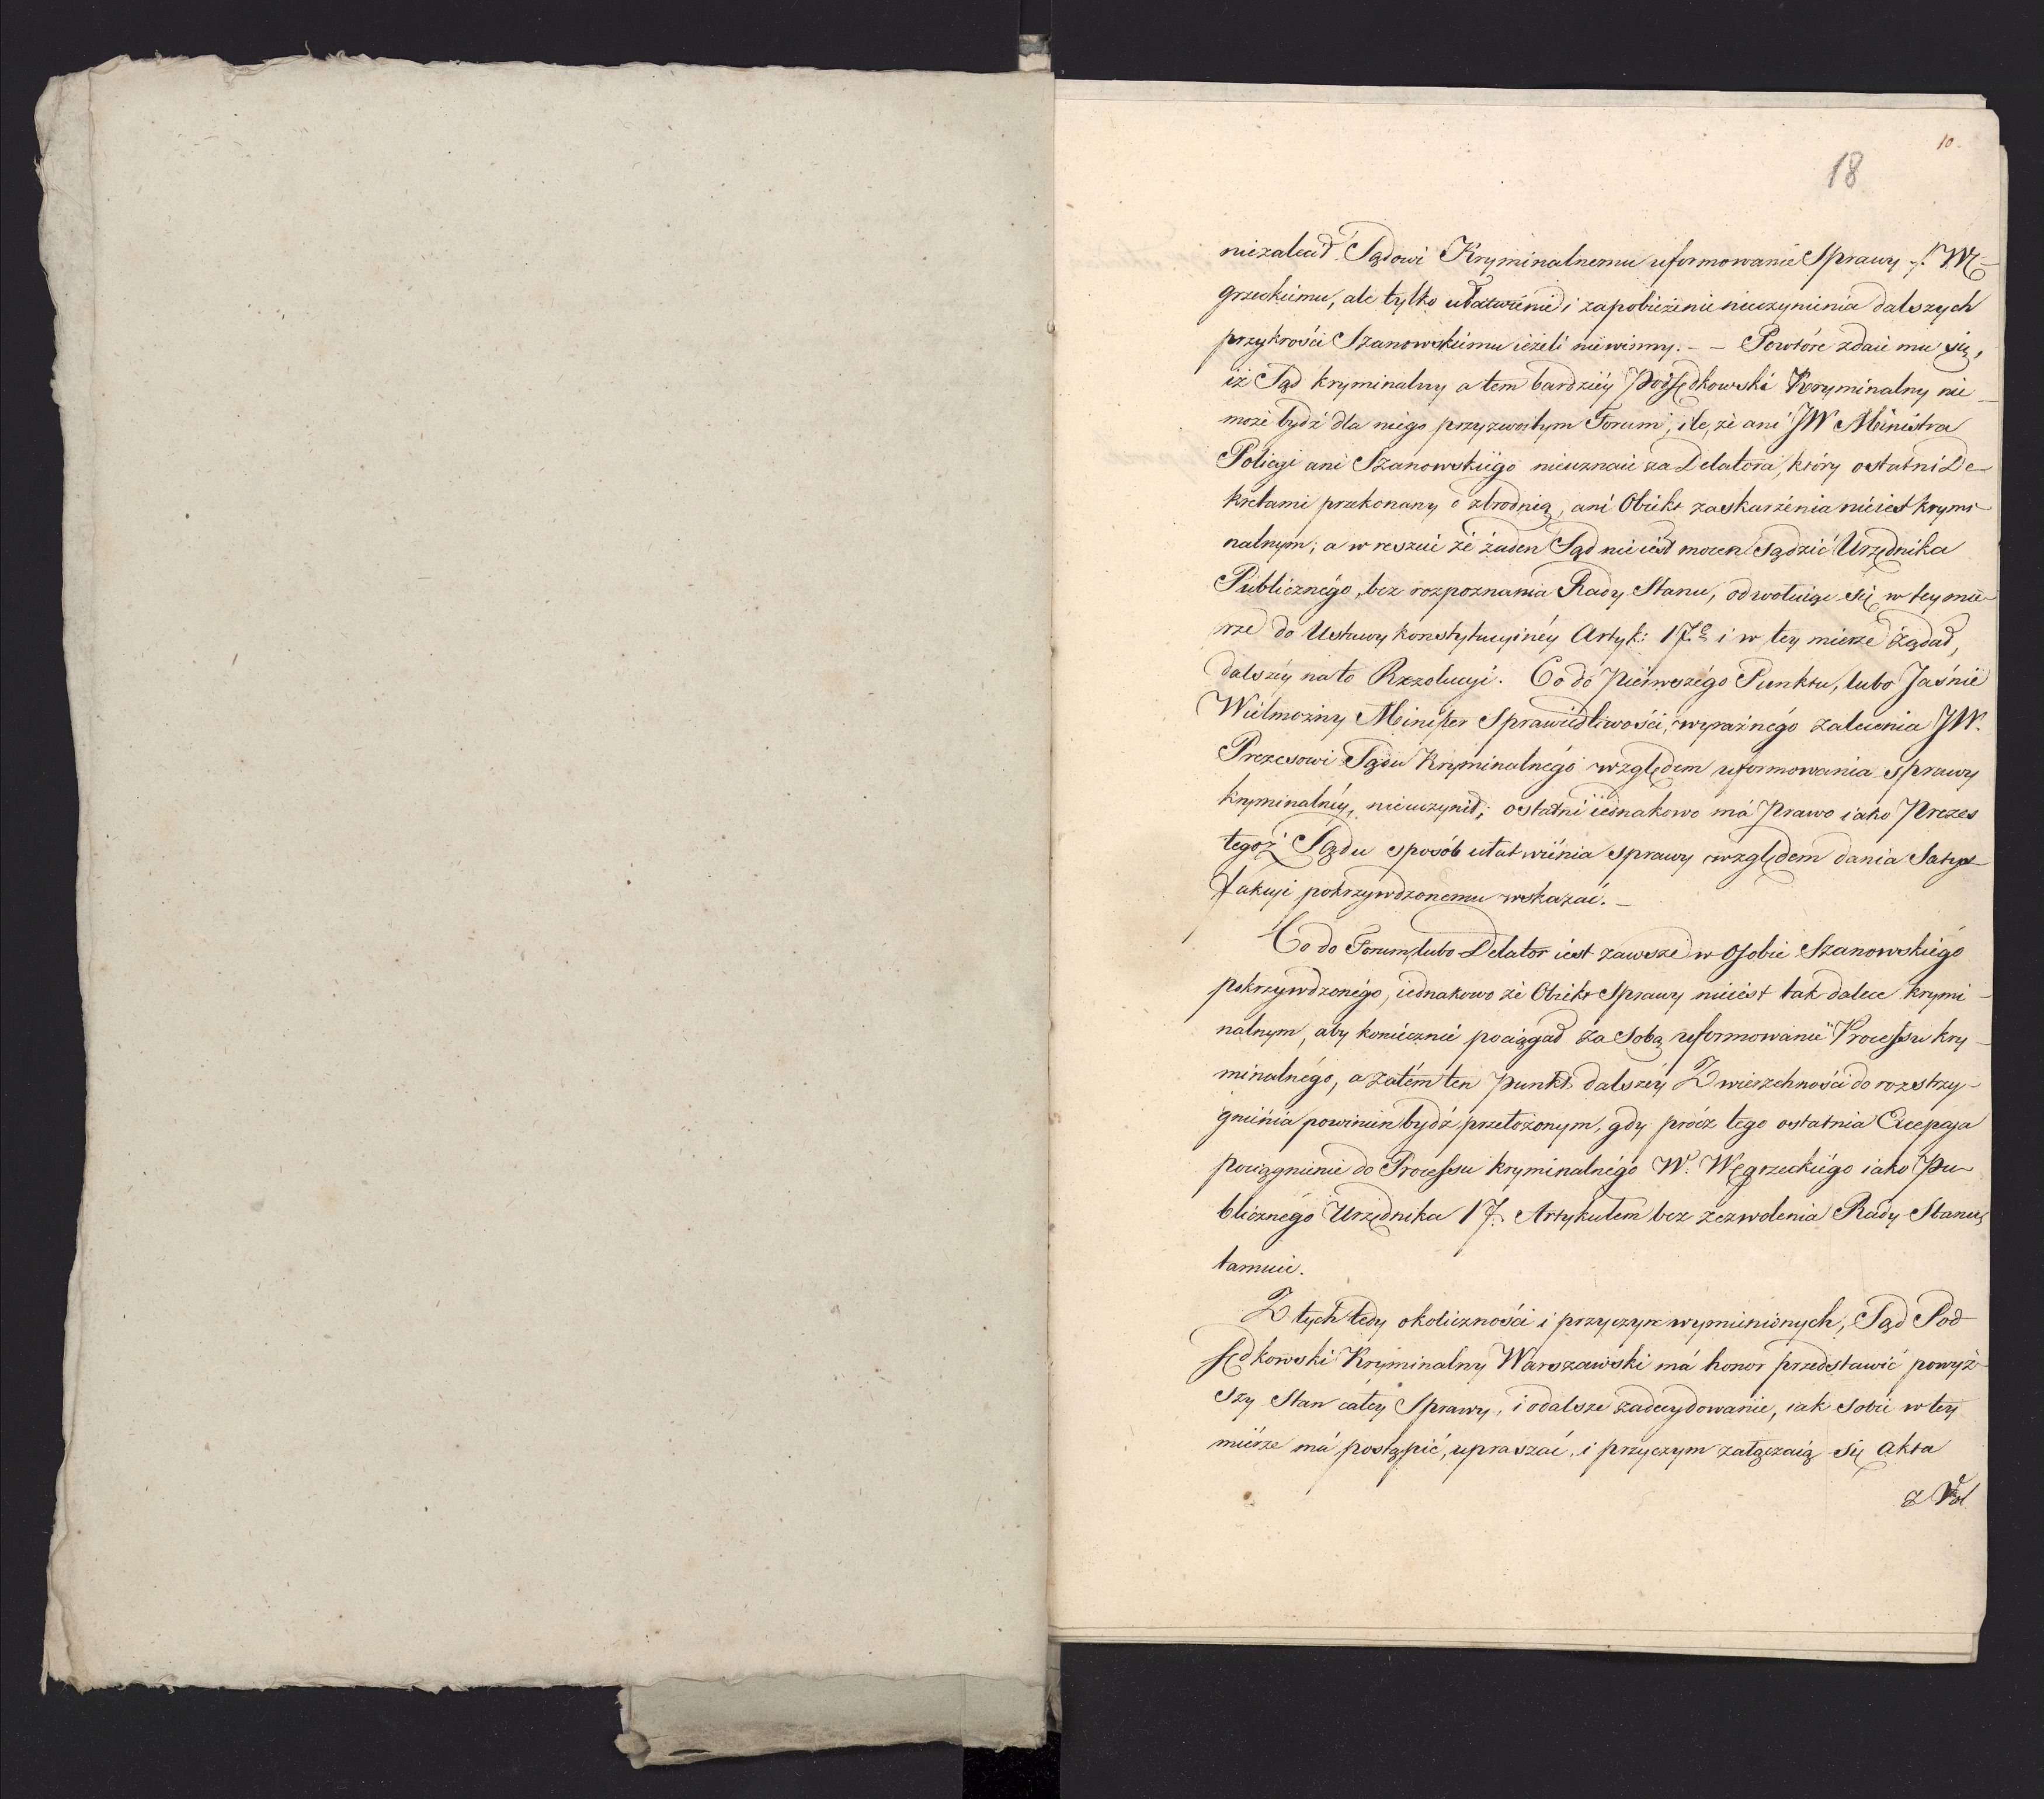 10
18
niezalecił Sądowi Kryminalnemu uformowanie Sprawy Wę-
grzeckiemu, ale tylko ułatwienie i zapobieżenie nieczynienia dalszych
przykrości Szanowskiemu ieżeli niewinny. – – Powtóre zdaie mu się,
iż Sąd kryminalny a tem bardziéy Podsędkowski Kryminalny nie
może bydź dla niego przyzwoitym Forum, ile, że ani JW Ministra
Policyi ani Szanowskiégo nieuznaie za Delatora, który ostatni De-
kretami przekonany o zbrodnią, ani Obiekt zaskarżenia nieiest krymi-
nalnym; a w reszcie że żaden Sąd nie iest mocen Sądzić Urzędnika
Publicznégo, bez rozpoznania Rady Stanu, odwołuiąc się w tey mie-
rze do Ustawy konstytucyinéy Artyk: 17. i w tey mierze żądał,
dalszéy na to Rezolucyi. Co do Piérwszégo Punktu, lubo Jaśnie
Wielmożny Minister Sprawiedliwości, wyraźnégo zalecenia JW.
Prezesowi Sądu Kryminalnégo względem uformowania sprawy
kryminalnéy, nieuczynił; ostatni iednakowo má Prawo iako Prezes
tegoż Sądu sposób ułatwienia sprawy względem dania Satys-
fakcyi pokrzywdzonemu wskazać. –
Co do Forum, lubo Delator iest zawsze w osobie Szanowskiégo
pokrzywdzonégo, iednakowo że Obiekt Sprawy nieiest tak dalece krymi-
nalnym, aby koniecznie pociągał za Sobą uformowanie Processu kry-
minalnégo, a zatém ten punkt dalszéy Zwierzchności do rozstrzy-
gnienia powinien bydź przełożonym, gdy prócz tego ostatnia Excepcya
pociągnienie do Processu kryminalnégo W. Węgrzeckiégo iako Pu-
blicznégo Urzędnika 17. Artykułem bez zezwolenia Rady Stanu,
tamuie.
Z tych tedy okoliczności i przyczyn wymienionych, Sąd Pod-
sędkowski Kryminalny Warszawski má honor przedstawić powyż-
szy Stan całey Sprawy, i o dalsze zadecydowanie, iak sobie w tey
mierze má postąpić, upraszać, i przyczym załączaią się Akta
z